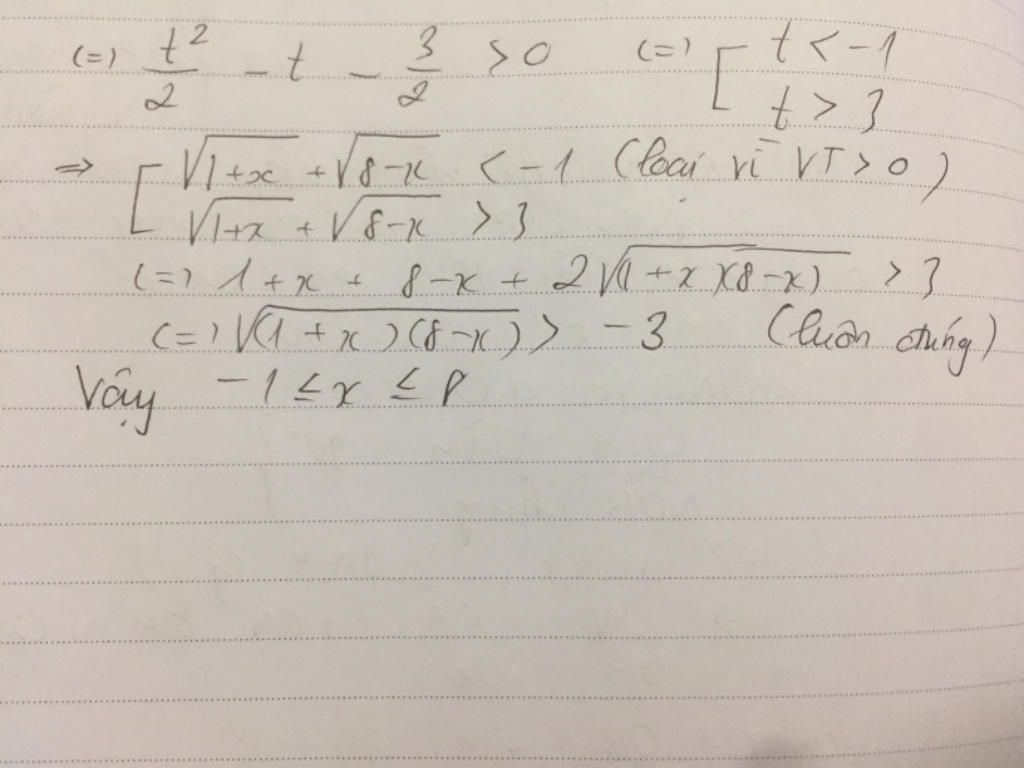 (=) t²/2 - t - 3/2 > 0 (=) [ t < -1
t > 3
=> [ √(1+x) + √(8-x) < -1 (loại vì VT > 0)
√(1+x) + √(8-x) > 3
(=) 1 + x + 8 - x + 2√((1+x)(8-x)) > 3
(=) √((1+x)(8-x)) > -3 (luôn đúng)
Vậy -1 ≤ x ≤ 8